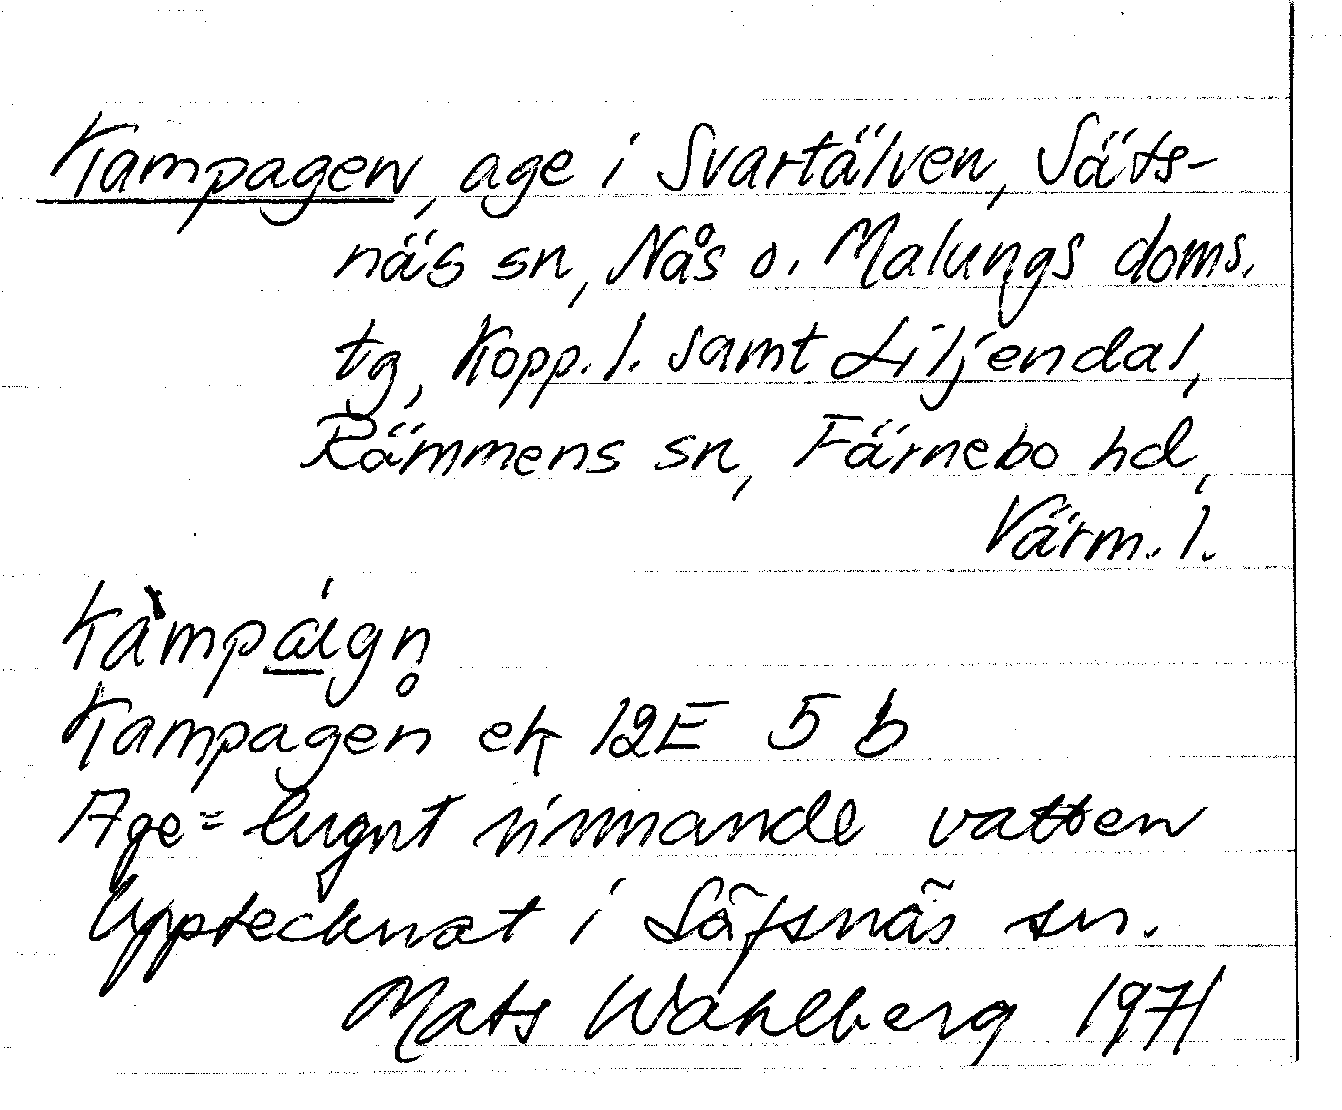 Kampagen, age i Svartälven, Säfs-
näs sn, Nås o. Malungs doms.
tg, Kopp. l. samt Liljendal,
Rämmens sn, Färnebo hd,
Värm. l.
Kàmpáign̥
Kampagen ek 12E 5 b
Age = lugnt rinnande vatten
Upptecknat i Säfsnäs sn.
Mats Wahlberg 1971